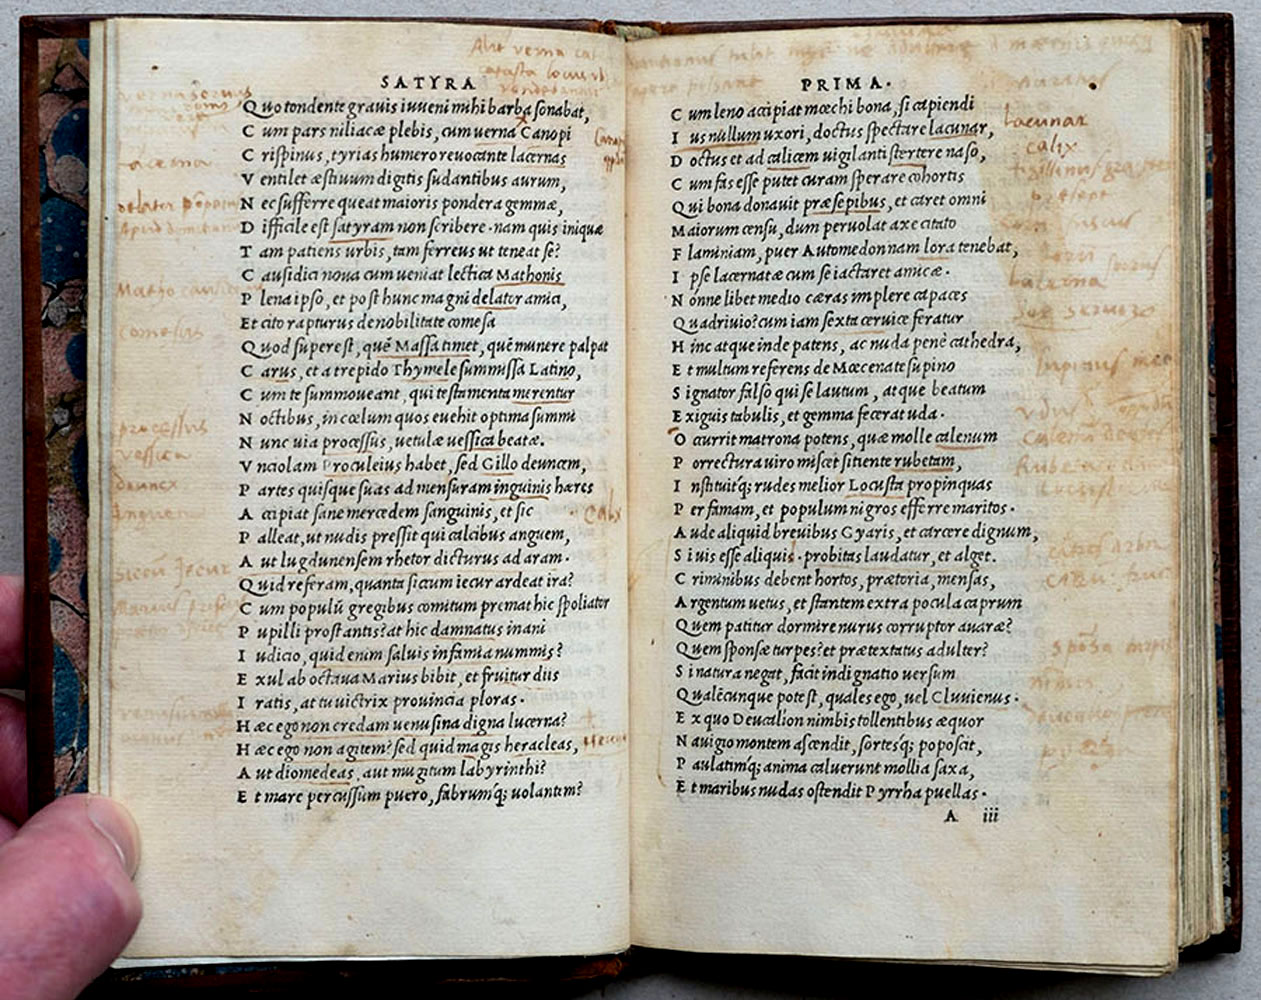 SATYRA
Quo tondente grauis iuueni mihi barba sonabat,
Cum pars niliacæ plebis, cum uerna Canopi
Crispinus, tyrias humero reuocante lacernas
Ventilet æstiuum digitis sudantibus aurum,
Nec sufferre queat maioris pondera gemmæ,
Difficile est satyram non scribere. nam quis iniquæ
Tam patiens urbis, tam ferreus ut teneat se?
Causidici noua cum ueniat lectica Mathonis
Plena ipso, et post hunc magni delator amici,
Et cito rapturus de nobilitate comesa
Quod superest, quē Massa timet, quē munere palpat
Carus, et a trepido Thymele summissa Latino,
Cum te summoueant, qui testamenta merentur
Noctibus, in cœlum quos euehit optima summi
Nunc uia processus, uetulæ uessica beatæ.
Vnciolam Proculeius habet, sed Gillo deuncem,
Partes quisque suas ad mensuram inguinis hæres
Accipiat sane mercedem sanguinis, et sic
Palleat, ut nudis pressit qui calcibus anguem,
Aut lugdunensem rhetor dicturus ad aram.
Quid referam, quanta siccum iecur ardeat ira?
Cum populū gregibus comitum premat hic spoliator
Pupilli prostantis? at hic damnatus inani
Iudicio, quid enim saluis infamia nummis?
Exul ab octaua Marius bibit, et fruitur diis
Iratis, at tu uictrix prouincia ploras.
Hæc ego non credam uenusina digna lucerna?
Hæc ego non agitem? sed quid magis heracleas,
Aut diomedeas, aut mugitum labyrinthi?
Et mare percussum puero, fabrumq; uolantem?
PRIMA.
Cum leno accipiat mœchi bona, si capiendi
Ius nullum uxori, doctus spectare lacunar,
Doctus et ad calicem uigilanti stertere naso,
Cum fas esse putet curam sperare cohortis
Qui bona donauit præsepibus, et caret omni
Maiorum censu, dum peruolat axe citato
Flaminiam, puer Automedon nam lora tenebat,
Ipse lacernatæ cum se iactaret amicæ.
Nonne libet medio ceras implere capaces
Quadriuio? cum iam sexta ceruice feratur
Hinc atque inde patens, ac nuda penè cathedra,
Et multum referens de Mœcenate supino
Signator falso qui se lautum, atque beatum
Exiguis tabulis, et gemma fecerat uda.
Occurrit matrona potens, quæ molle calenum
Porrectura uiro miscet sitiente rubetam,
Instituitq; rudes melior Locusta propinquas
Per famam, et populum nigros efferre maritos.
Aude aliquid breuibus Gyaris, et carcere dignum,
Si uis esse aliquis. probitas laudatur, et alget.
Criminibus debent hortos, prætoria, mensas,
Argentum uetus, et stantem extra pocula caprum
Quem patitur dormire nurus corruptor auaræ?
Quem sponsæ turpes? et prætextatus adulter?
Si natura negat, facit indignatio uersum
Qualēcunque potest, quales ego, uel Cluuienus.
Ex quo Deucalion nimbis tollentibus æquor
Nauigio montem ascendit, sortesq; poposcit,
Paulatimq; anima caluerunt mollia saxa,
Et maribus nudas ostendit Pyrrha puellas.
A iii
lacunar
calix